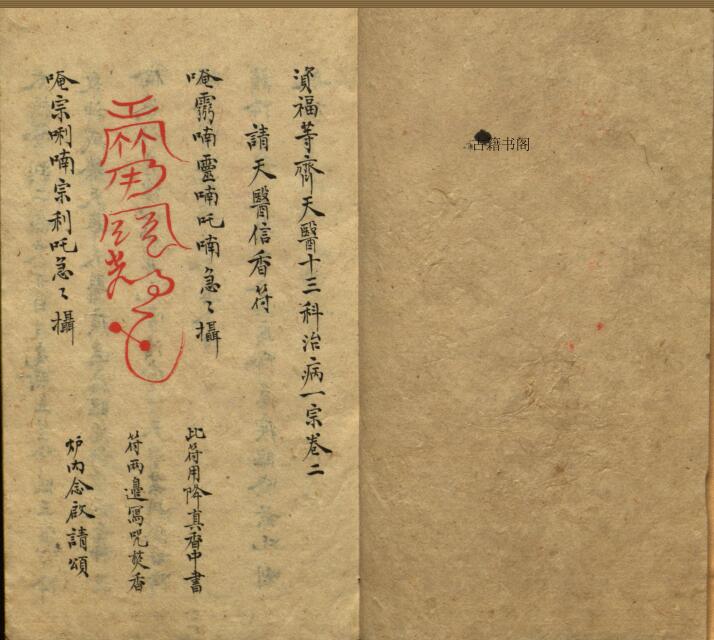 古籍书阁
資福等齊天醫十三科治病一宗卷二
請天醫信香符
唵霛喃靈喃吒喃急〻攝
唵宗唎喃宗利吒急〻攝
此符用降真香中書
符兩邊寫咒焚香
炉内念啟請頌